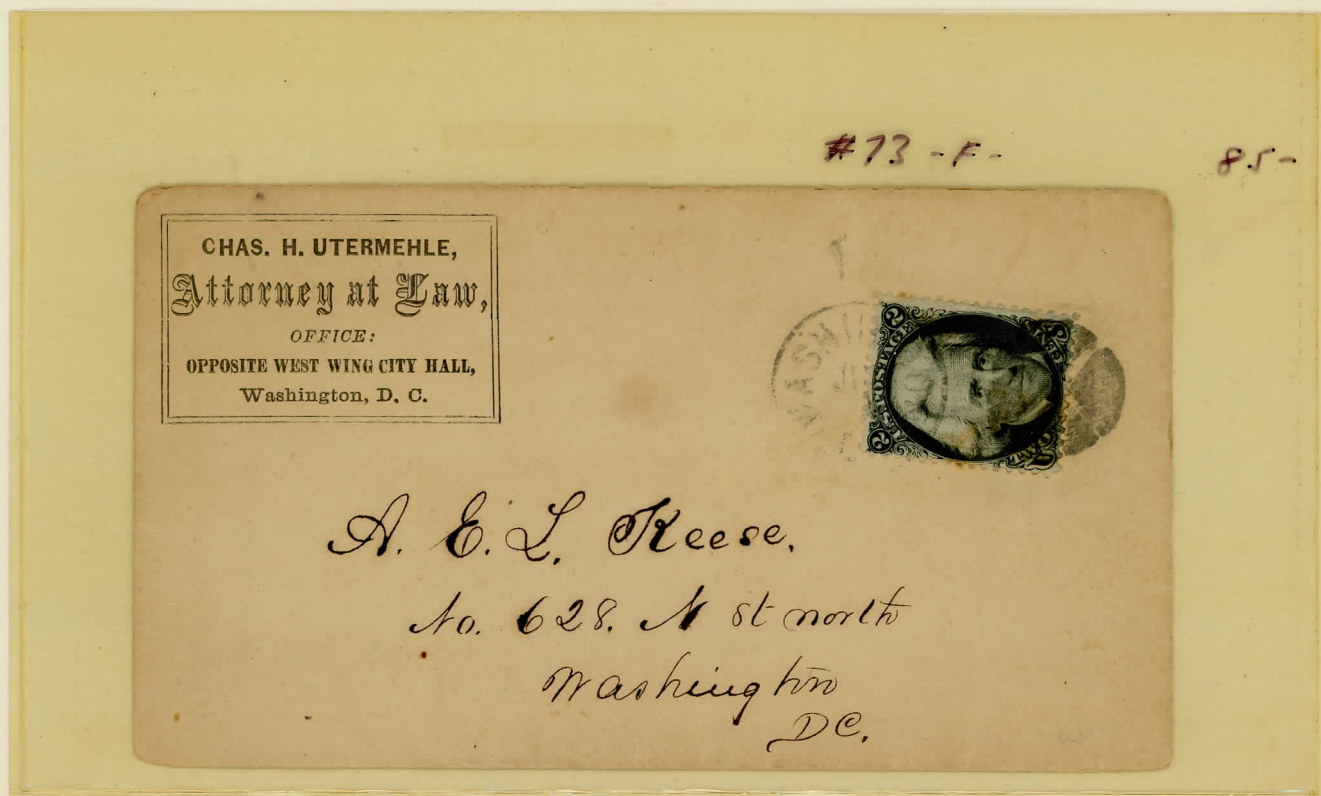 #73 - F -
85 -
CHAS. H. UTERMEHLE,
Attorney at Law,
OFFICE:
OPPOSITE WEST WING CITY HALL,
Washington, D. C.
2 U.S. POSTAGE 2
A. E. L. Keese.
No. 628. N st north
Washington
DC.